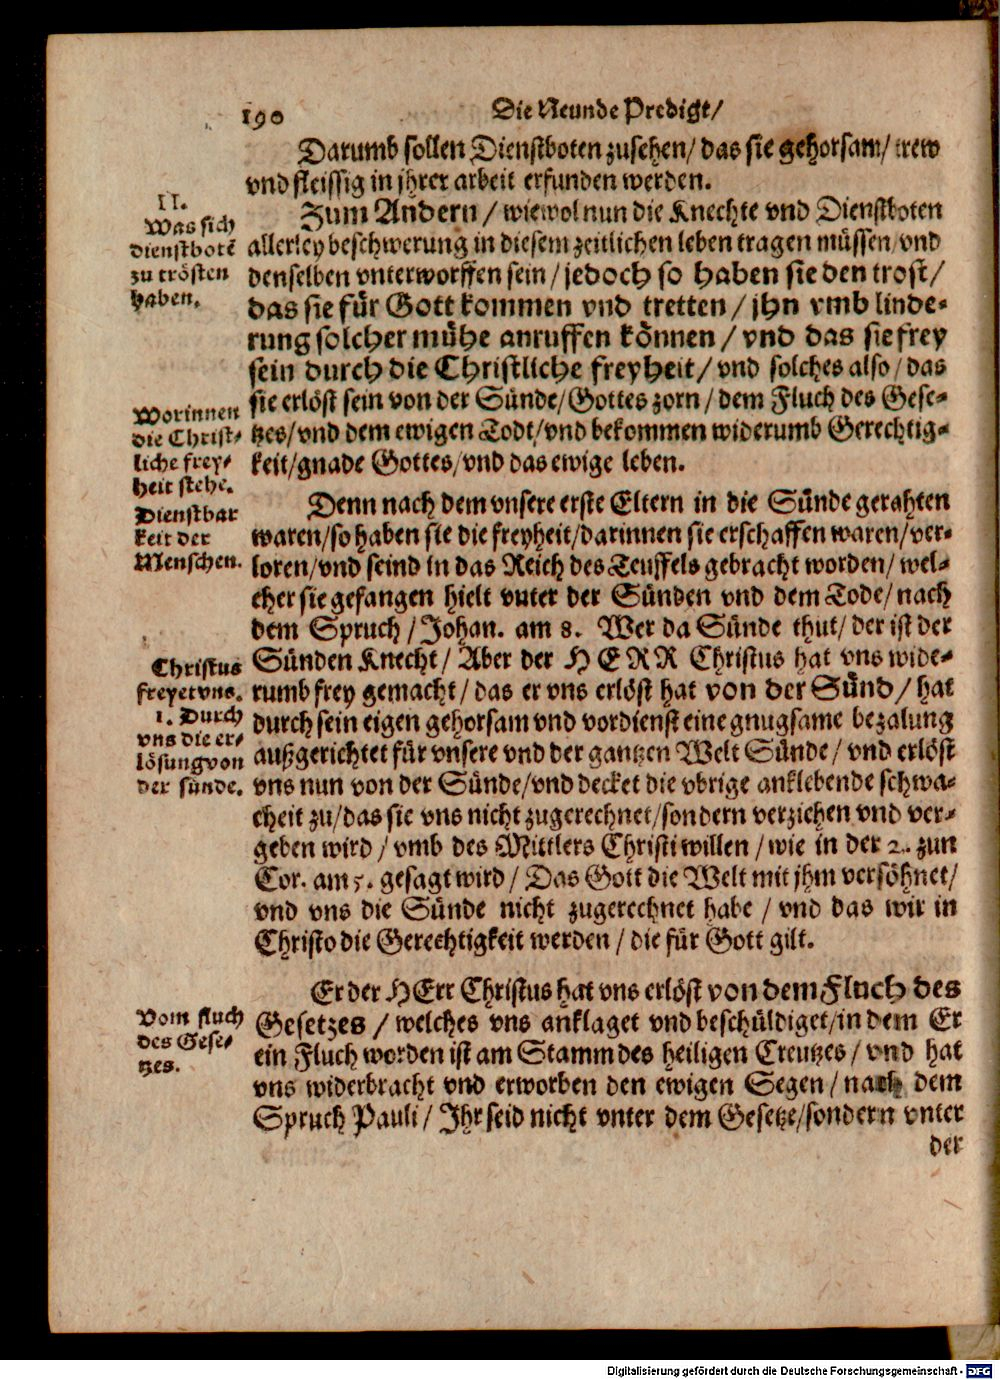 190 Die Neunde Predigt/
Darumb sollen Dienstboten zusehen/ das sie gehorsam/ trew
vnd fleissig in jhrer arbeit erfunden werden.
II.
Was sich
dienstbotẽ
zu trösten
haben.
Zum Andern / wiewol nun die Knechte vnd Dienstboten
allerley beschwerung in diesem zeitlichen leben tragen müssen/ vnd
denselben vnterworffen sein / jedoch so haben sie den trost /
das sie für Gott kommen vnd tretten / jhn vmb linde-
rung solcher mühe anruffen können / vnd das sie frey
sein durch die Christliche freyheit / vnd solches also / das
sie erlöst sein von der Sünde/ Gottes zorn / dem Fluch des Gese-
tzes/ vnd dem ewigen Todt/ vnd bekommen widerumb Gerechtig-
keit/ gnade Gottes/ vnd das ewige leben.
Worinnen
die Christ-
liche frey-
heit stehe.
Dienstbar
keit der
Menschen.
Denn nach dem vnsere erste Eltern in die Sünde gerahten
waren/ so haben sie die freyheit/ darinnen sie erschaffen waren/ ver-
loren/ vnd seind in das Reich des Teuffels gebracht worden/ wel-
cher sie gefangen hielt vnter der Sünden vnd dem Tode/ nach
dem Spruch / Johan. am 8. Wer da Sünde thut/ der ist der
Sünden Knecht/ Aber der HERR Christus hat vns wide-
rumb frey gemacht/ das er vns erlöst hat von der Sünd / hat
durch sein eigen gehorsam vnd vordienst eine gnugsame bezalung
außgerichtet für vnsere vnd der gantzen Welt Sünde / vnd erlöst
vns nun von der Sünde/ vnd decket die vbrige anklebende schwa-
cheit zu/ das sie vns nicht zugerechnet/ sondern verziehen vnd ver-
geben wird / vmb des Mittlers Christi willen / wie in der 2. zun
Cor. am 5. gesagt wird / Das Gott die Welt mit jhm versöhnet/
vnd vns die Sünde nicht zugerechnet habe / vnd das wir in
Christo die Gerechtigkeit werden / die für Gott gilt.
Christus
freyet vns.
1. Durch
vns die er-
lösung von
der sünde.
Er der HErr Christus hat vns erlöst von dem Fluch des
Gesetzes / welches vns anklaget vnd beschüldiget/ in dem Er
ein Fluch worden ist am Stamm des heiligen Creutzes / vnd hat
vns widerbracht vnd erworben den ewigen Segen / nach dem
Spruch Pauli / Ihr seid nicht vnter dem Gesetze/ sondern vnter
der
Vom fluch
des Gese-
tzes.
Digitalisierung gefördert durch die Deutsche Forschungsgemeinschaft - DFG